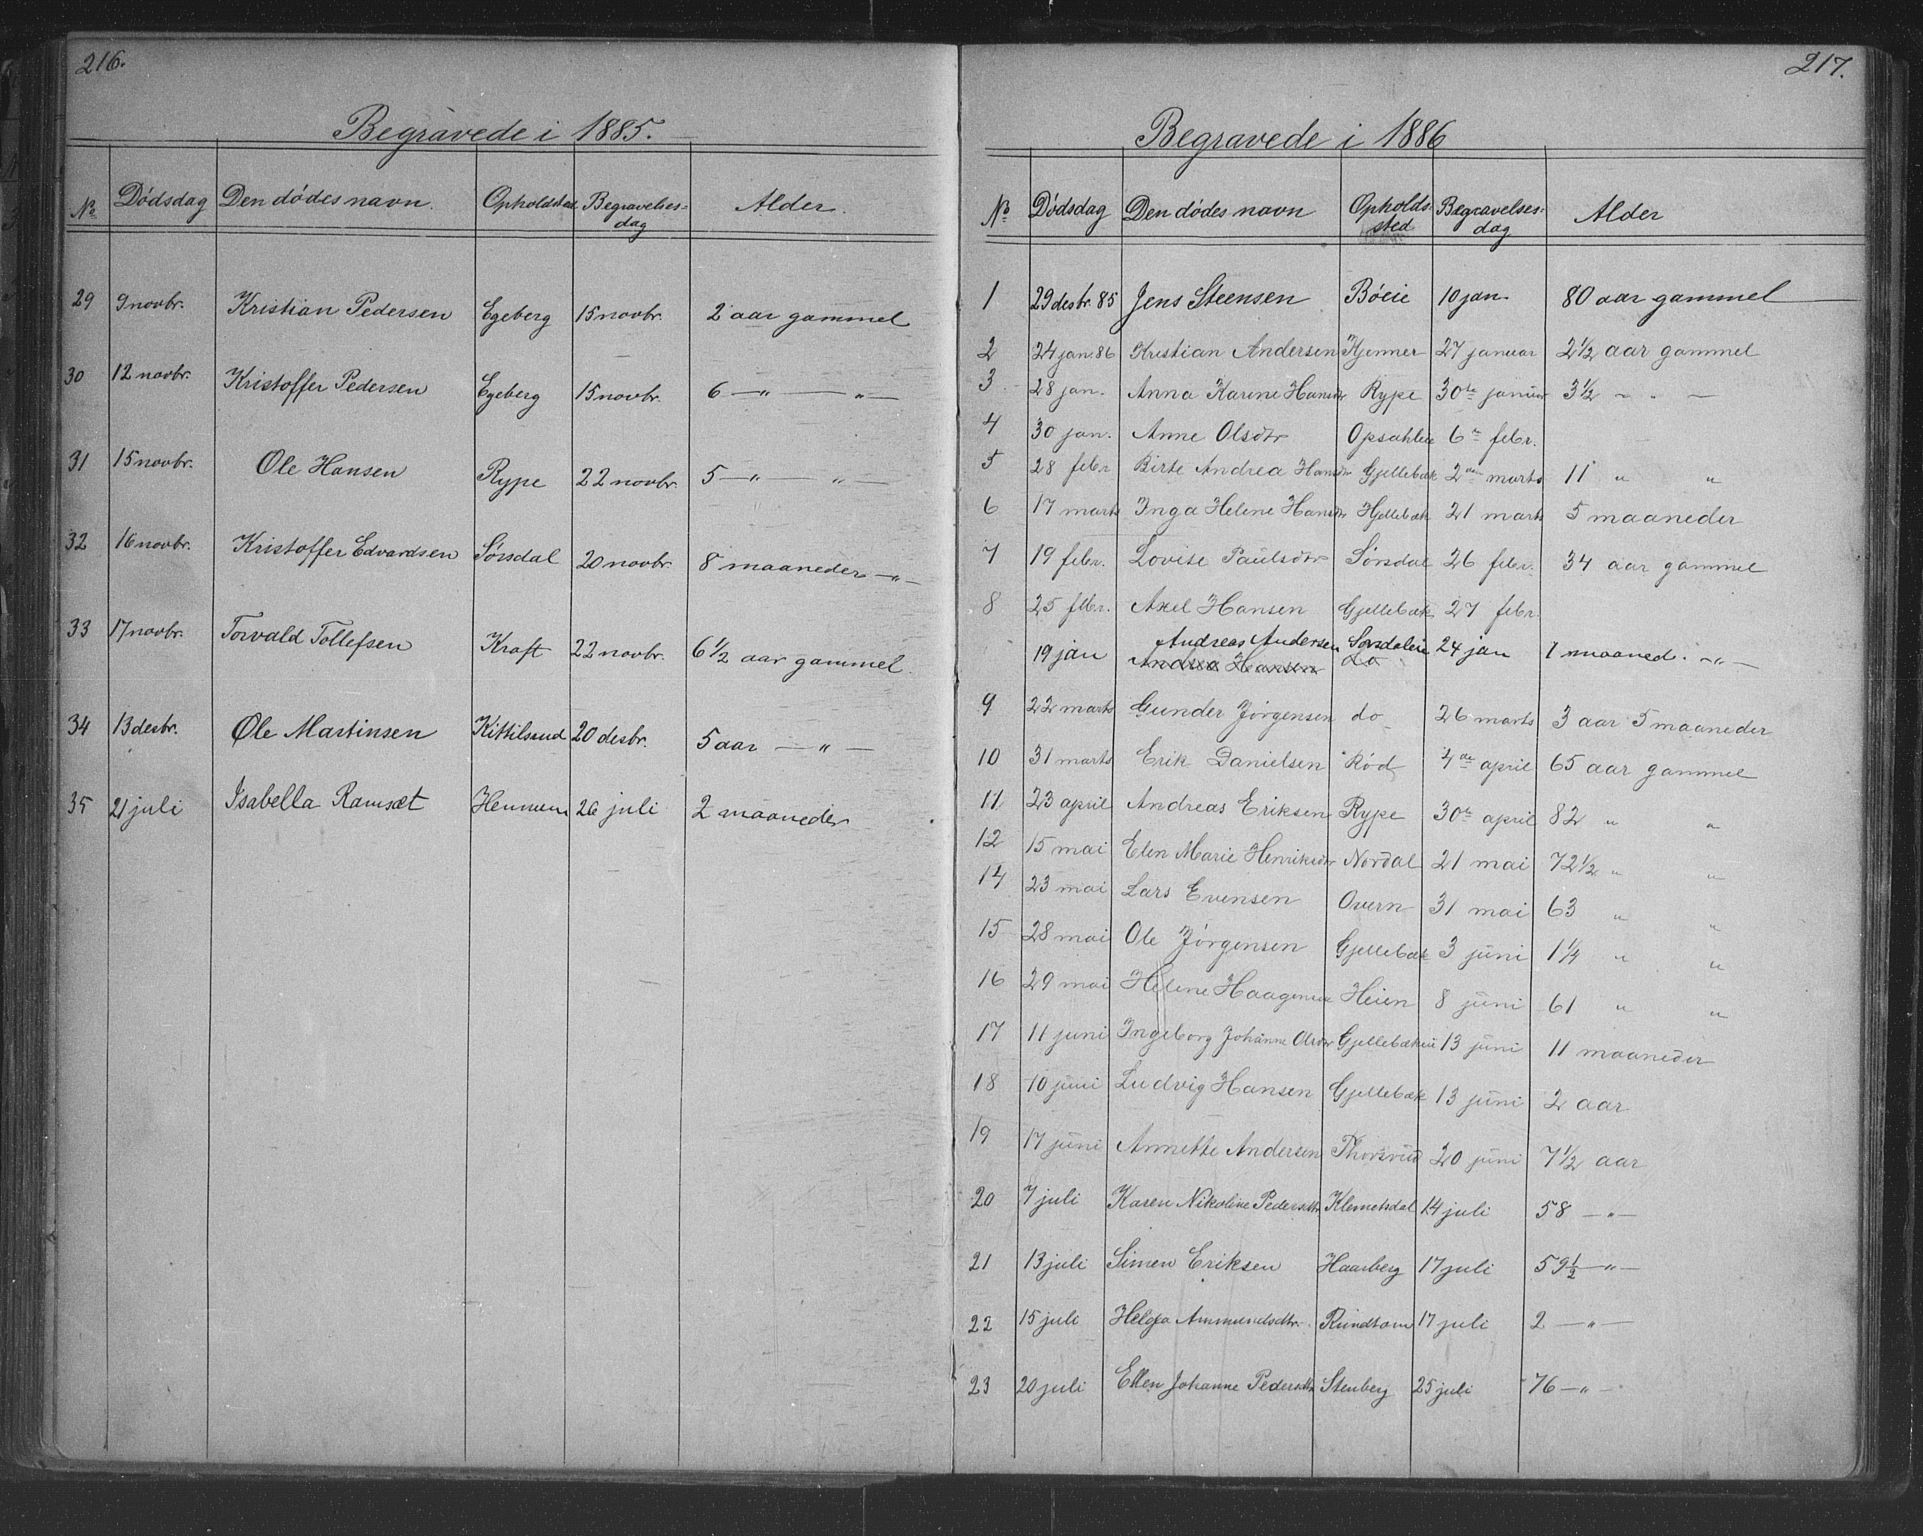 216.
Begravede i 1885.
No Dødsdag Den dødes navn. Opholdsted Begravelses-
dag Alder.
29 9 novbr. Kristian Pedersen Egeberg 15 novbr. 2 aar gammel
30 12 novbr. Kristoffer Pedersen Egeberg 15 novbr. 6 — " — " —
31 15 novbr. Ole Hansen Rype 22 novbr. 5 — " — " —
32 16 novbr. Kristoffer Edvardsen Sørsdal 20 novbr. 8 maaneder — " —
33 17 novbr. Torvald Tollefsen Kraft 22 novbr. 6 1/2 aar gammel.
34 13 desbr. Ole Martinsen Kittilsrud 20 desbr. 5 aar — " —
35 21 juli Isabella Ramsæt 26 juli 2 maaneder
217.
Begravede i 1886
No Dødsdag Den dødes navn Opholds-
sted Begravelses-
dag Alder
1 29 desbr. 85 Jens Steensen Bøeie 10 jan. 80 aar gammel
2 24 jan. 86 Kristian Andersen Hjenner 27 januar 2 1/2 aar gammel
3 28 jan. Anna Karine Hansdtr Rype 30te januar 3 1/2 — " —
4 30 jan. Anne Olsdtr Opsahleie 6te febr.
5 28 febr Birte Andrea Hansdtr Gjellebæk 2den marts 11 " "
6 17 marts Inga Helene Hansdtr Hjellebæk 21 marts 5 maaneder
7 19 febr. Lovise Paulsdtr Sørsdal 26 febr. 34 aar gammel
8 25 febr. Axel Hansen Gjellebæk 27 febr.
19 jan Andreas Andersen Sørsdaleie 24 jan 1 maaned. — " —
Andrea Hansen do
9 22 marts Gunder Jørgensen do 26 marts 3 aar 5 maaneder
10 31 marts Erik Danielsen Rød 4de april 65 aar gammel
11 23 april Andreas Eriksen Rype 30te april 82 " "
12 15 mai Elen Marie Henriksdtr Nordal 21 mai 72 1/2 " "
14 23 mai Lars Evensen Overn 31 mai 63 " "
15 28 mai Ole Jørgensen Gjellebæk 3 juni 1 1/4 " "
16 29 mai Helene Haagensen Heien 8 juni 61 " "
17 11 juni Ingeborg Johanne Olsdtr Gjellebækeie 13 juni 11 maaneder
18 10 juni Ludvig Hansen Gjellebæk 13 juni 2 aar
19 17 juni Annette Andersen Thorsrud 20 juni 7 1/2 aar
20 7 juli Karen Nikoline Pedersdtr Klemetsdal 14 juli 58 — " —
21 13 juli Simen Eriksen Haarberg 17 juli 59 1/2 — " —
22 15 juli Helga Ammundsdtr. Rundtom 17 juli 2 — " —
23 20 juli Ellen Johanne Pedersdtr Stenberg 25 juli 76 — " —